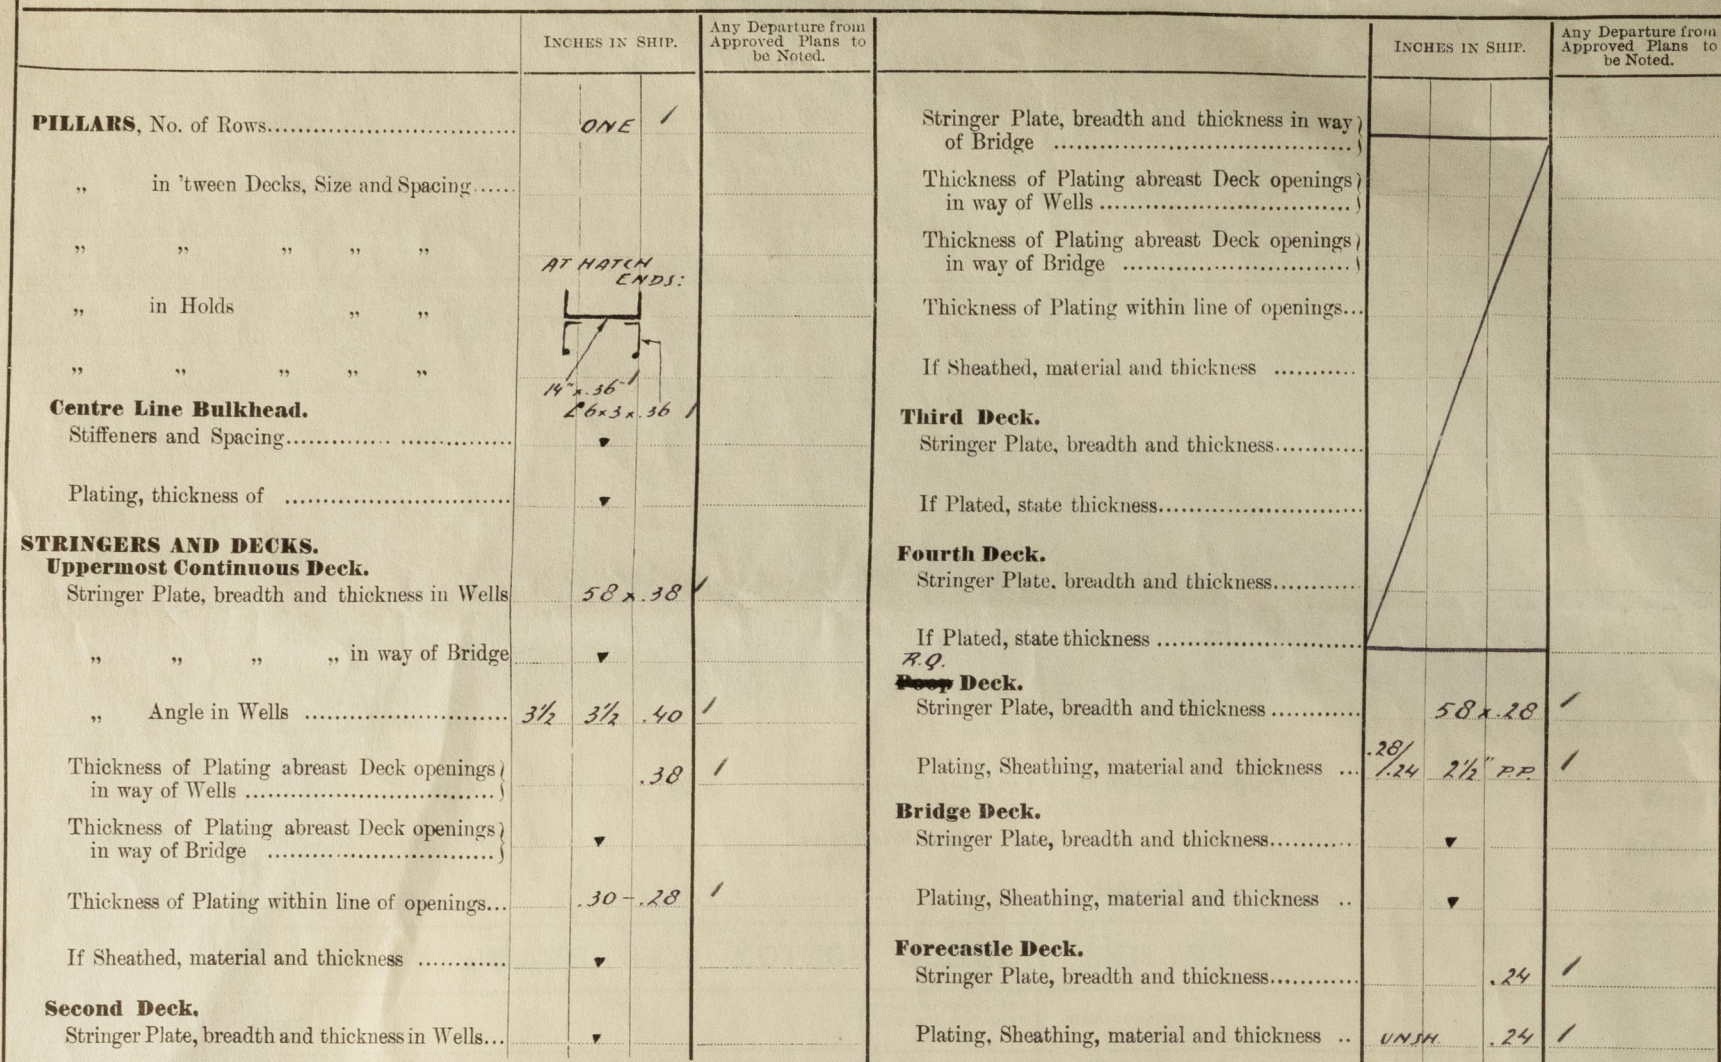 INCHES IN SHIP.
Any Departure from
Approved Plans to
be Noted.
PILLARS, No. of Rows.............................. ONE /
„ in 'tween Decks, Size and Spacing......
„ „ „ „ „
AT HATCH
ENDS:
„ in Holds „ „
„ „ „ „ „
14" x .36"
Centre Line Bulkhead. L 6 x 3 x .36 /
Stiffeners and Spacing..............................
Plating, thickness of ..............................
STRINGERS AND DECKS.
Uppermost Continuous Deck.
Stringer Plate, breadth and thickness in Wells 58 x .38 /
„ „ „ „ in way of Bridge
„ Angle in Wells .............................. 3½ 3½ .40 /
Thickness of Plating abreast Deck openings
in way of Wells .............................. .38 /
Thickness of Plating abreast Deck openings
in way of Bridge ..............................
Thickness of Plating within line of openings... .30 - .28 /
If Sheathed, material and thickness ............
Second Deck.
Stringer Plate, breadth and thickness in Wells...
INCHES IN SHIP.
Any Departure from
Approved Plans to
be Noted.
Stringer Plate, breadth and thickness in way
of Bridge ..............................
Thickness of Plating abreast Deck openings
in way of Wells ..............................
Thickness of Plating abreast Deck openings
in way of Bridge ..............................
Thickness of Plating within line of openings...
If Sheathed, material and thickness ...........
Third Deck.
Stringer Plate, breadth and thickness............
If Plated, state thickness..............................
Fourth Deck.
Stringer Plate, breadth and thickness............
If Plated, state thickness ..............................
R.Q.
Poop Deck.
Stringer Plate, breadth and thickness ............ 58 x .28 /
Plating, Sheathing, material and thickness ... .28/.24 2½" P.P. /
Bridge Deck.
Stringer Plate, breadth and thickness............
Plating, Sheathing, material and thickness ..
Forecastle Deck.
Stringer Plate, breadth and thickness............ .24 /
Plating, Sheathing, material and thickness .. UNSH. .24 /